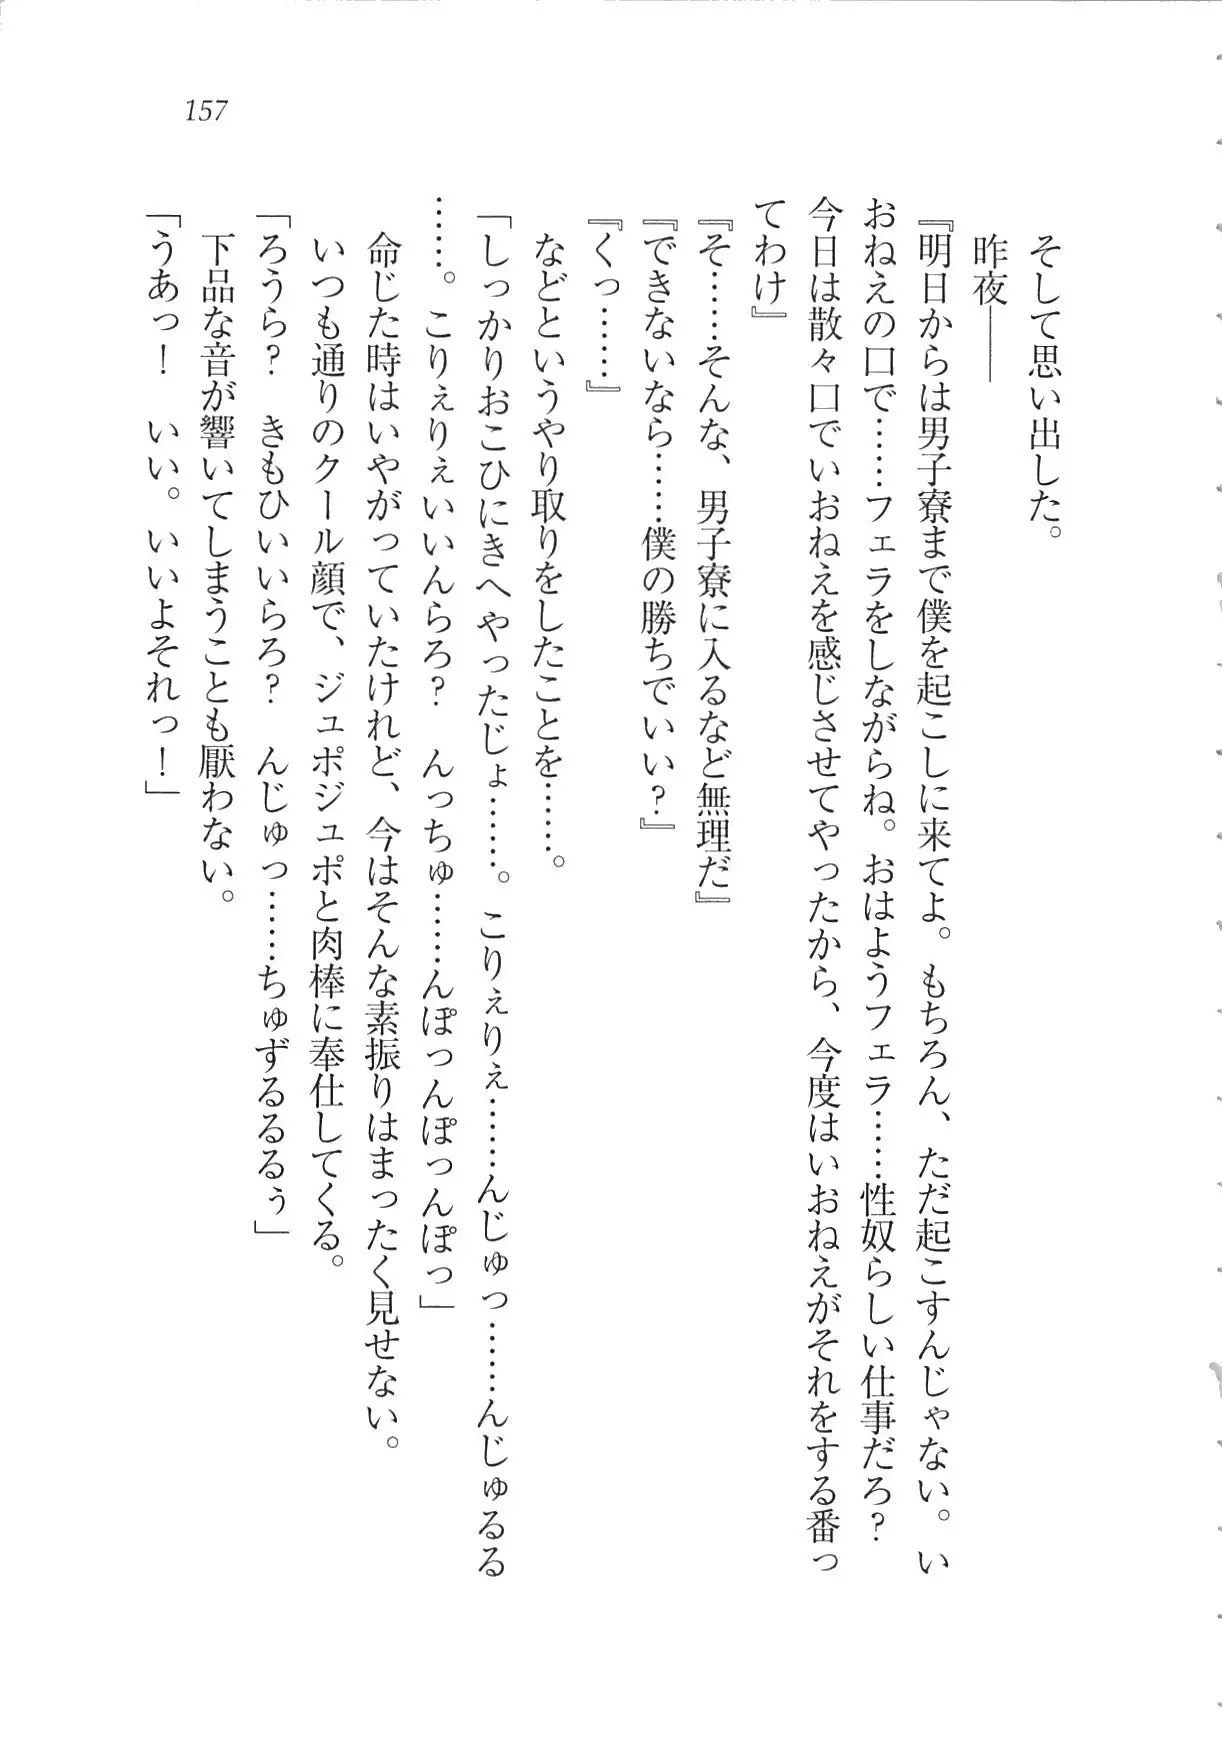 157
そして思い出した。
昨夜――
『明日からは男子寮まで僕を起こしに来てよ。もちろん、ただ起こすんじゃない。い
おねえの口で……フェラをしながらね。おはようフェラ……性奴らしい仕事だろ？
今日は散々口でいおねえを感じさせてやったから、今度はいおねえがそれをする番っ
てわけ』
『そ……そんな、男子寮に入るなど無理だ』
『できないなら……僕の勝ちでいい？』
『くっ……』
などというやり取りをしたことを……。
「しっかりおこひにきへやったじょ……。こりぇりぇ……んじゅっ……んじゅるる
……。こりぇりぇいいんらろ？　んっちゅ……んぽっんぽっんぽっ」
命じた時はいやがっていたけれど、今はそんな素振りはまったく見せない。
いつも通りのクール顔で、ジュポジュポと肉棒に奉仕してくる。
「ろうら？　きもひいいらろ？　んじゅっ……ちゅずるるるぅ」
下品な音が響いてしまうことも厭わない。
「うあっ！　いい。いいよそれっ！」